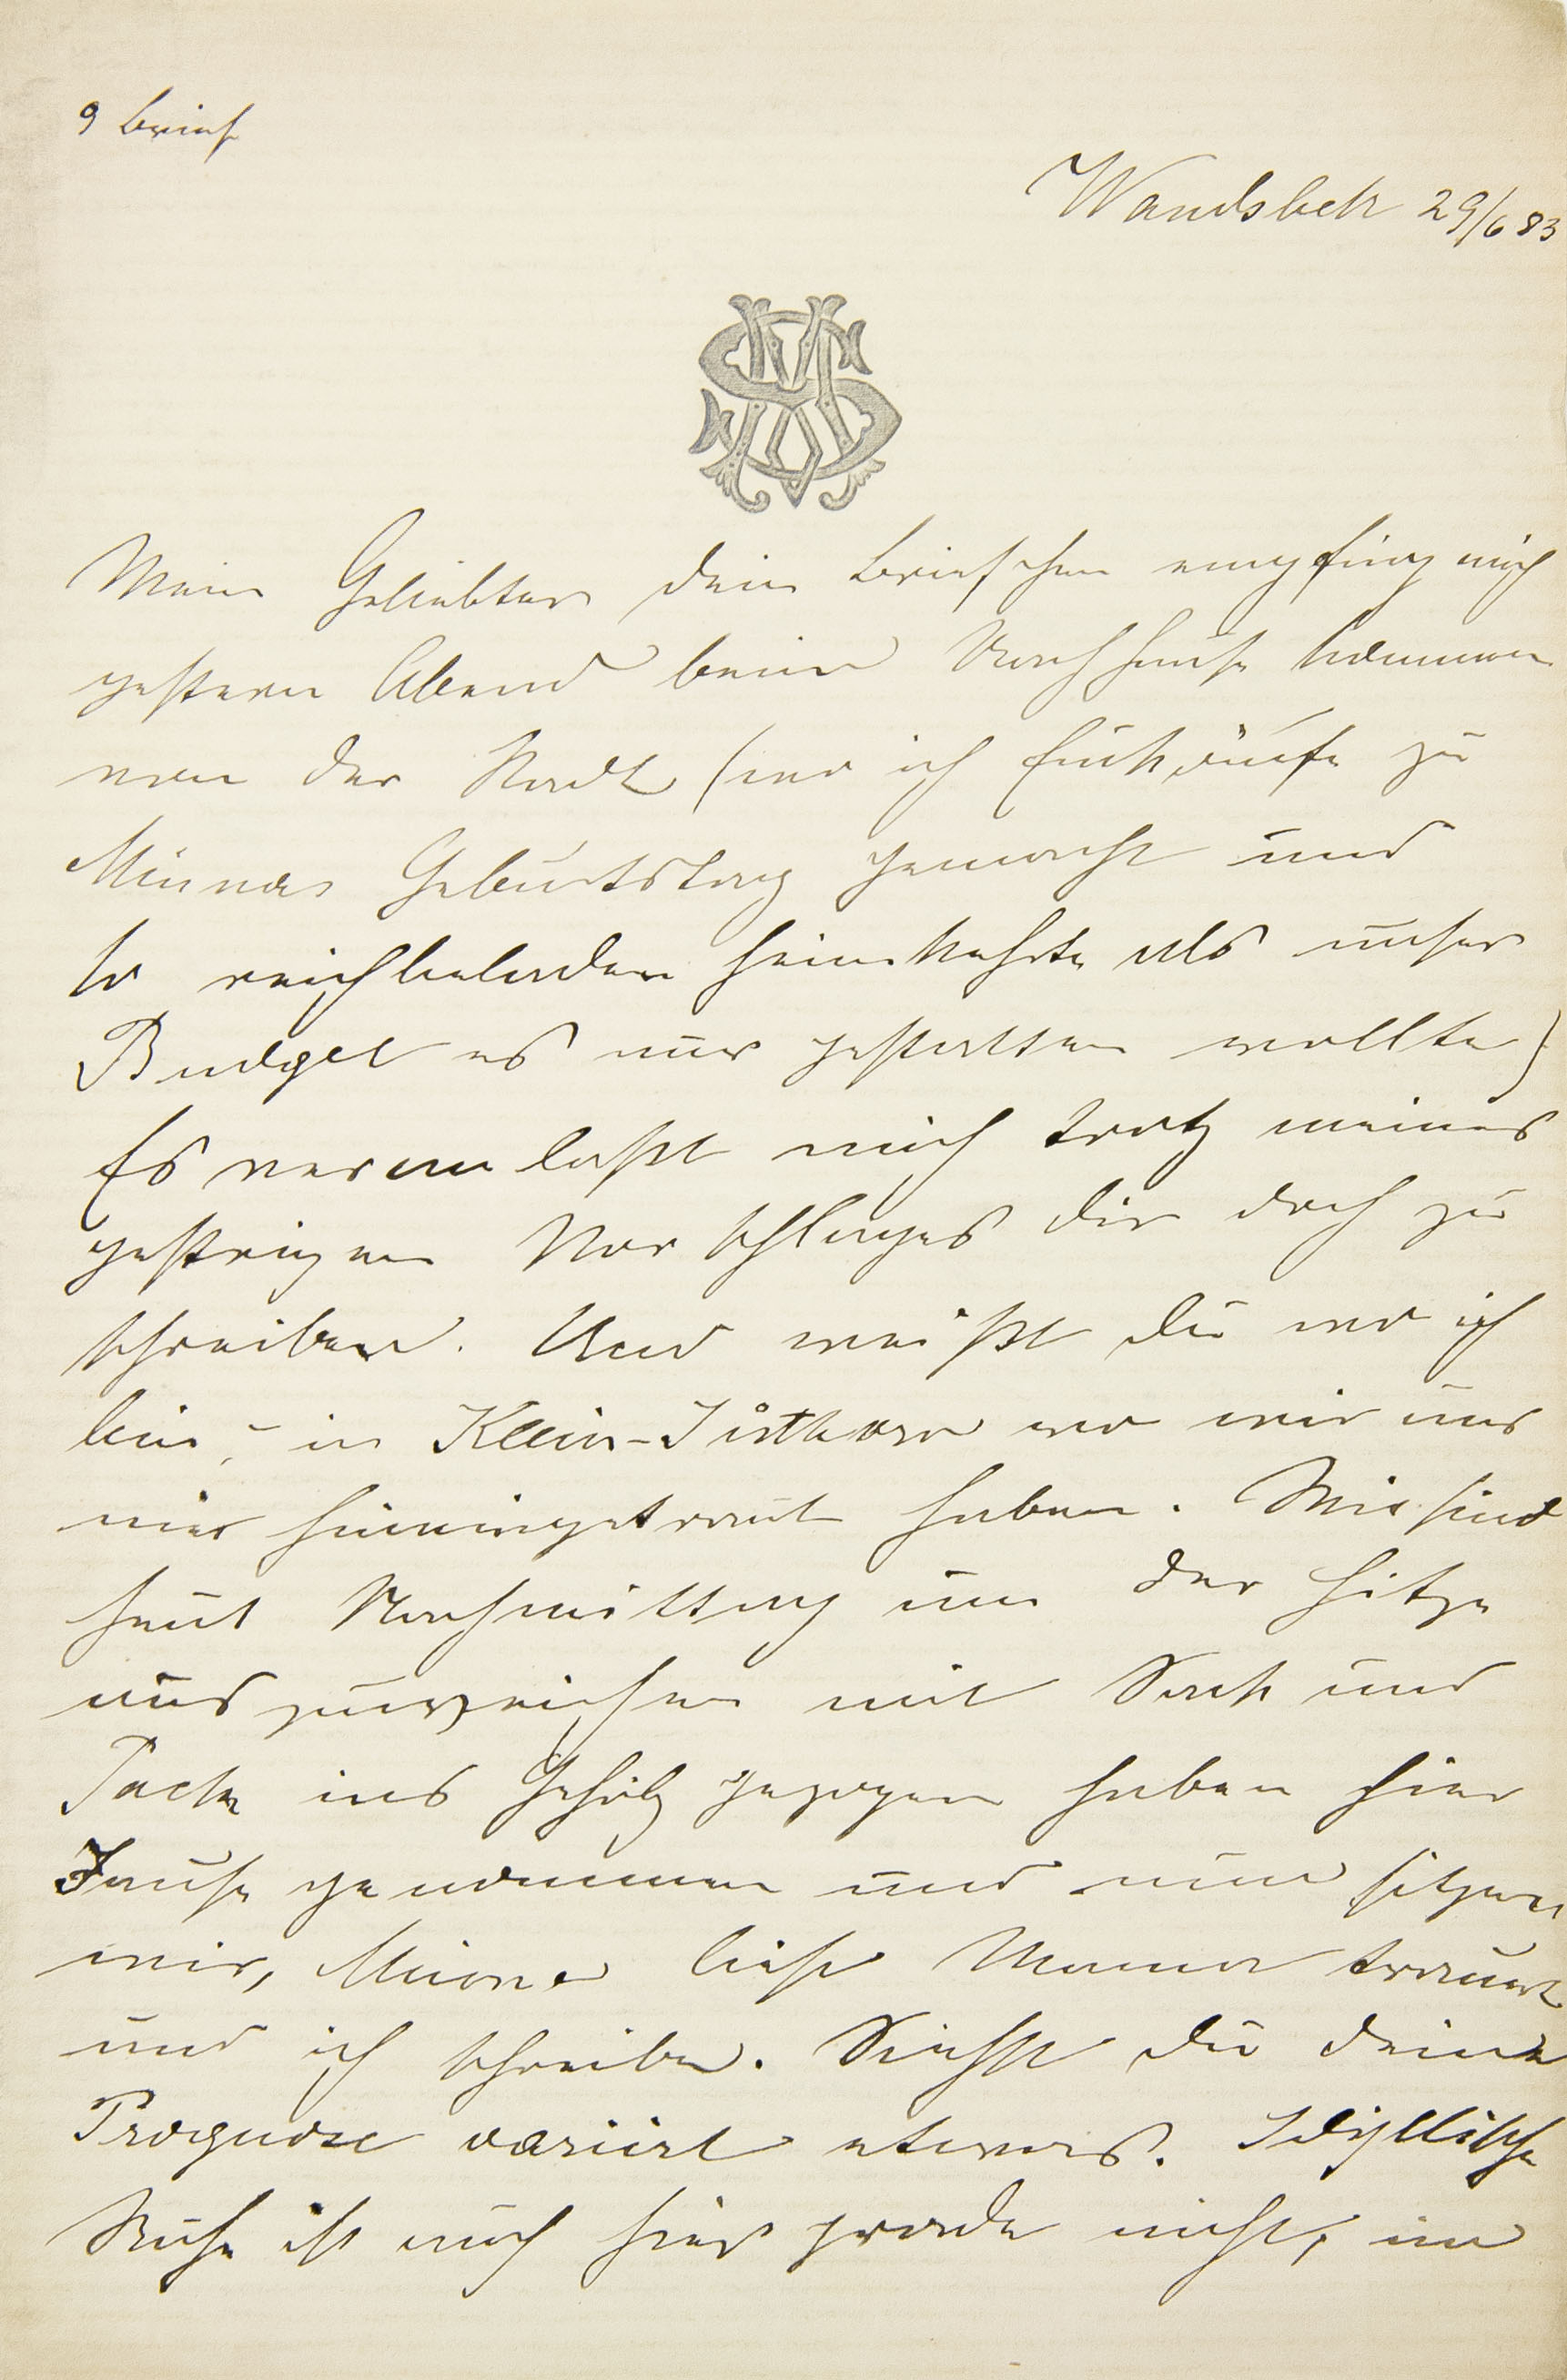 9 Brief
Wandsbek 29/6 83
Mein Geliebter dein Briefchen empfing mich
gestern Abend beim Nachhause kommen
von der Stadt (wo ich Einkäufe zu
Minnas Geburtstag gemacht und
so reichbeladen heimkehrte als unser
Budget es nur gestatten wollte)
Es veranlaßt mich trotz meines
gestrigen Vorschlages dir doch zu
schreiben. Und weißt du wo ich
bin, in Klein-Jüthorn wo wir uns
nie hineingetraut haben. Wir sind
heut Nachmittag um der Hitze
auszuweichen mit Sack und
Pack ins Gehölz gezogen haben hier
Jause genommen und nun sitzen
wir, Minna liest Mama träumt
und ich schreibe. Siehst du deine
Prognose variirt etwas. Idyllische
Ruhe ist auch hier grade nicht, im